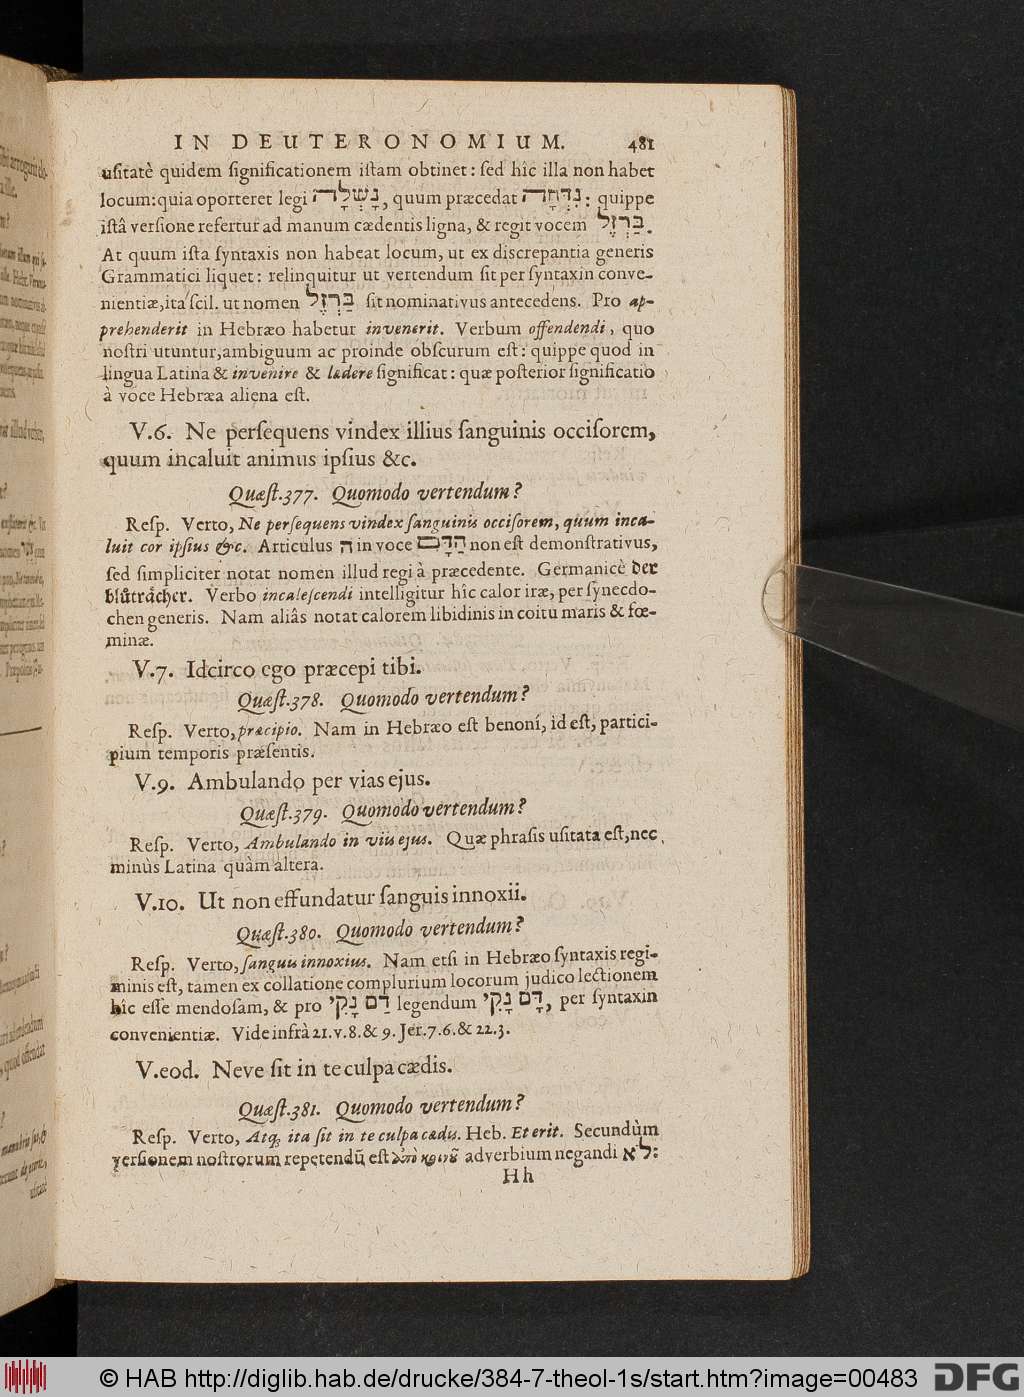 IN DEUTERONOMIUM. 481
usitatè quidem significationem istam obtinet: sed hîc illa non habet
locum: quia oporteret legi נָשְׁלָה, quum præcedat נִדְּחָה: quippe
istâ versione refertur ad manum cædentis ligna, & regit vocem בַּרְזֶל.
At quum ista syntaxis non habeat locum, ut ex discrepantia generis
Grammatici liquet: relinquitur ut vertendum sit per syntaxin conve-
nientiæ, ita scil. ut nomen בַּרְזֶל sit nominativus antecedens. Pro ap-
prehenderit in Hebræo habetur invenerit. Verbum offendendi, quo
nostri utuntur, ambiguum ac proinde obscurum est: quippe quod in
lingua Latina & invenire & lædere significat: quæ posterior significatio
à voce Hebræa aliena est.
V.6. Ne persequens vindex illius sanguinis occisorem,
quum incaluit animus ipsius &c.
Quæst.377. Quomodo vertendum?
Resp. Verto, Ne persequens vindex sanguinis occisorem, quum inca-
luit cor ipsius &c. Articulus ה in voce הַדָּם non est demonstrativus,
sed simpliciter notat nomen illud regi à præcedente. Germanicè der
blůtråcher. Verbo incalescendi intelligitur hîc calor iræ, per synecdo-
chen generis. Nam aliâs notat calorem libidinis in coitu maris & fœ-
minæ.
V.7. Idcirco ego præcepi tibi.
Quæst.378. Quomodo vertendum?
Resp. Verto, præcipio. Nam in Hebræo est benoní, id est, partici-
pium temporis præsentis.
V.9. Ambulando per vias ejus.
Quæst.379. Quomodo vertendum?
Resp. Verto, Ambulando in viis ejus. Quæ phrasis usitata est, nec
minùs Latina quàm altera.
V.10. Ut non effundatur sanguis innoxii.
Quæst.380. Quomodo vertendum?
Resp. Verto, sanguis innoxius. Nam etsi in Hebræo syntaxis regi-
minis est, tamen ex collatione complurium locorum judico lectionem
hîc esse mendosam, & pro דַּם נָקִי legendum דָּם נָקִי, per syntaxin
convenientiæ. Vide infrà 21.v.8.& 9. Jer.7.6.& 22.3.
V.eod. Neve sit in te culpa cædis.
Quæst.381. Quomodo vertendum?
Resp. Verto, Atq; ita sit in te culpa cædis. Heb. Et erit. Secundùm
versionem nostrorum repetendũ est ἀπὸ κοινοῦ adverbium negandi לֹא:
Hh
© HAB http://diglib.hab.de/drucke/384-7-theol-1s/start.htm?image=00483
DFG